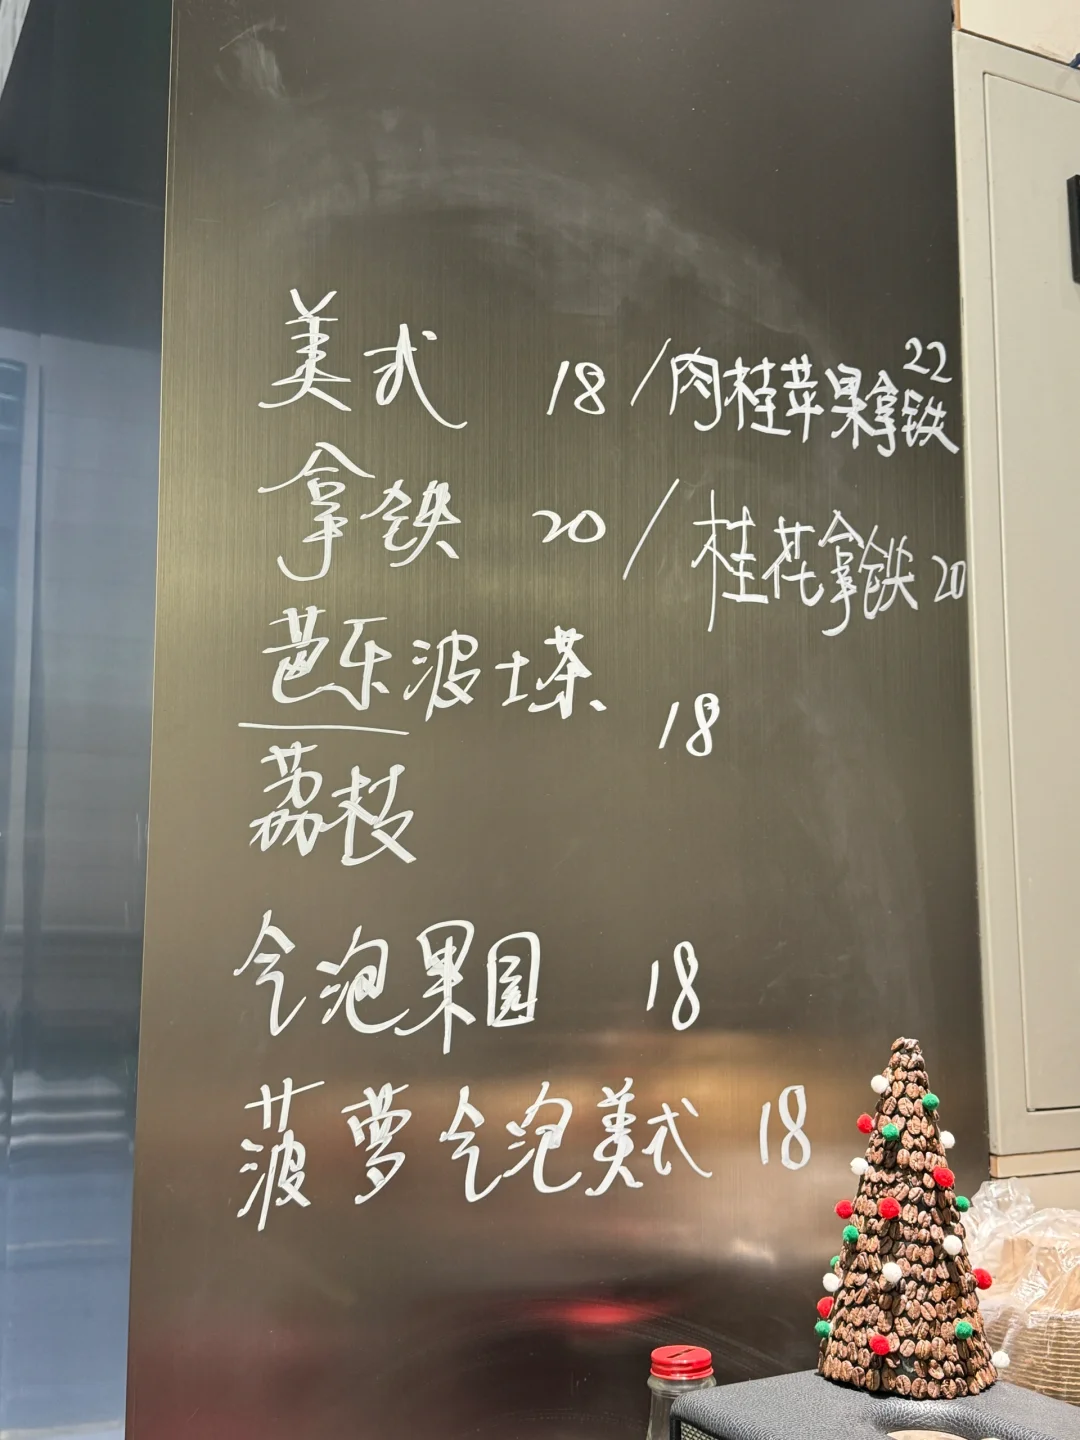 美式 18 / 肉桂苹果拿铁 22
拿铁 20 / 桂花拿铁 20
芭乐波士茶 18
荔枝
气泡果园 18
菠萝气泡美式 18